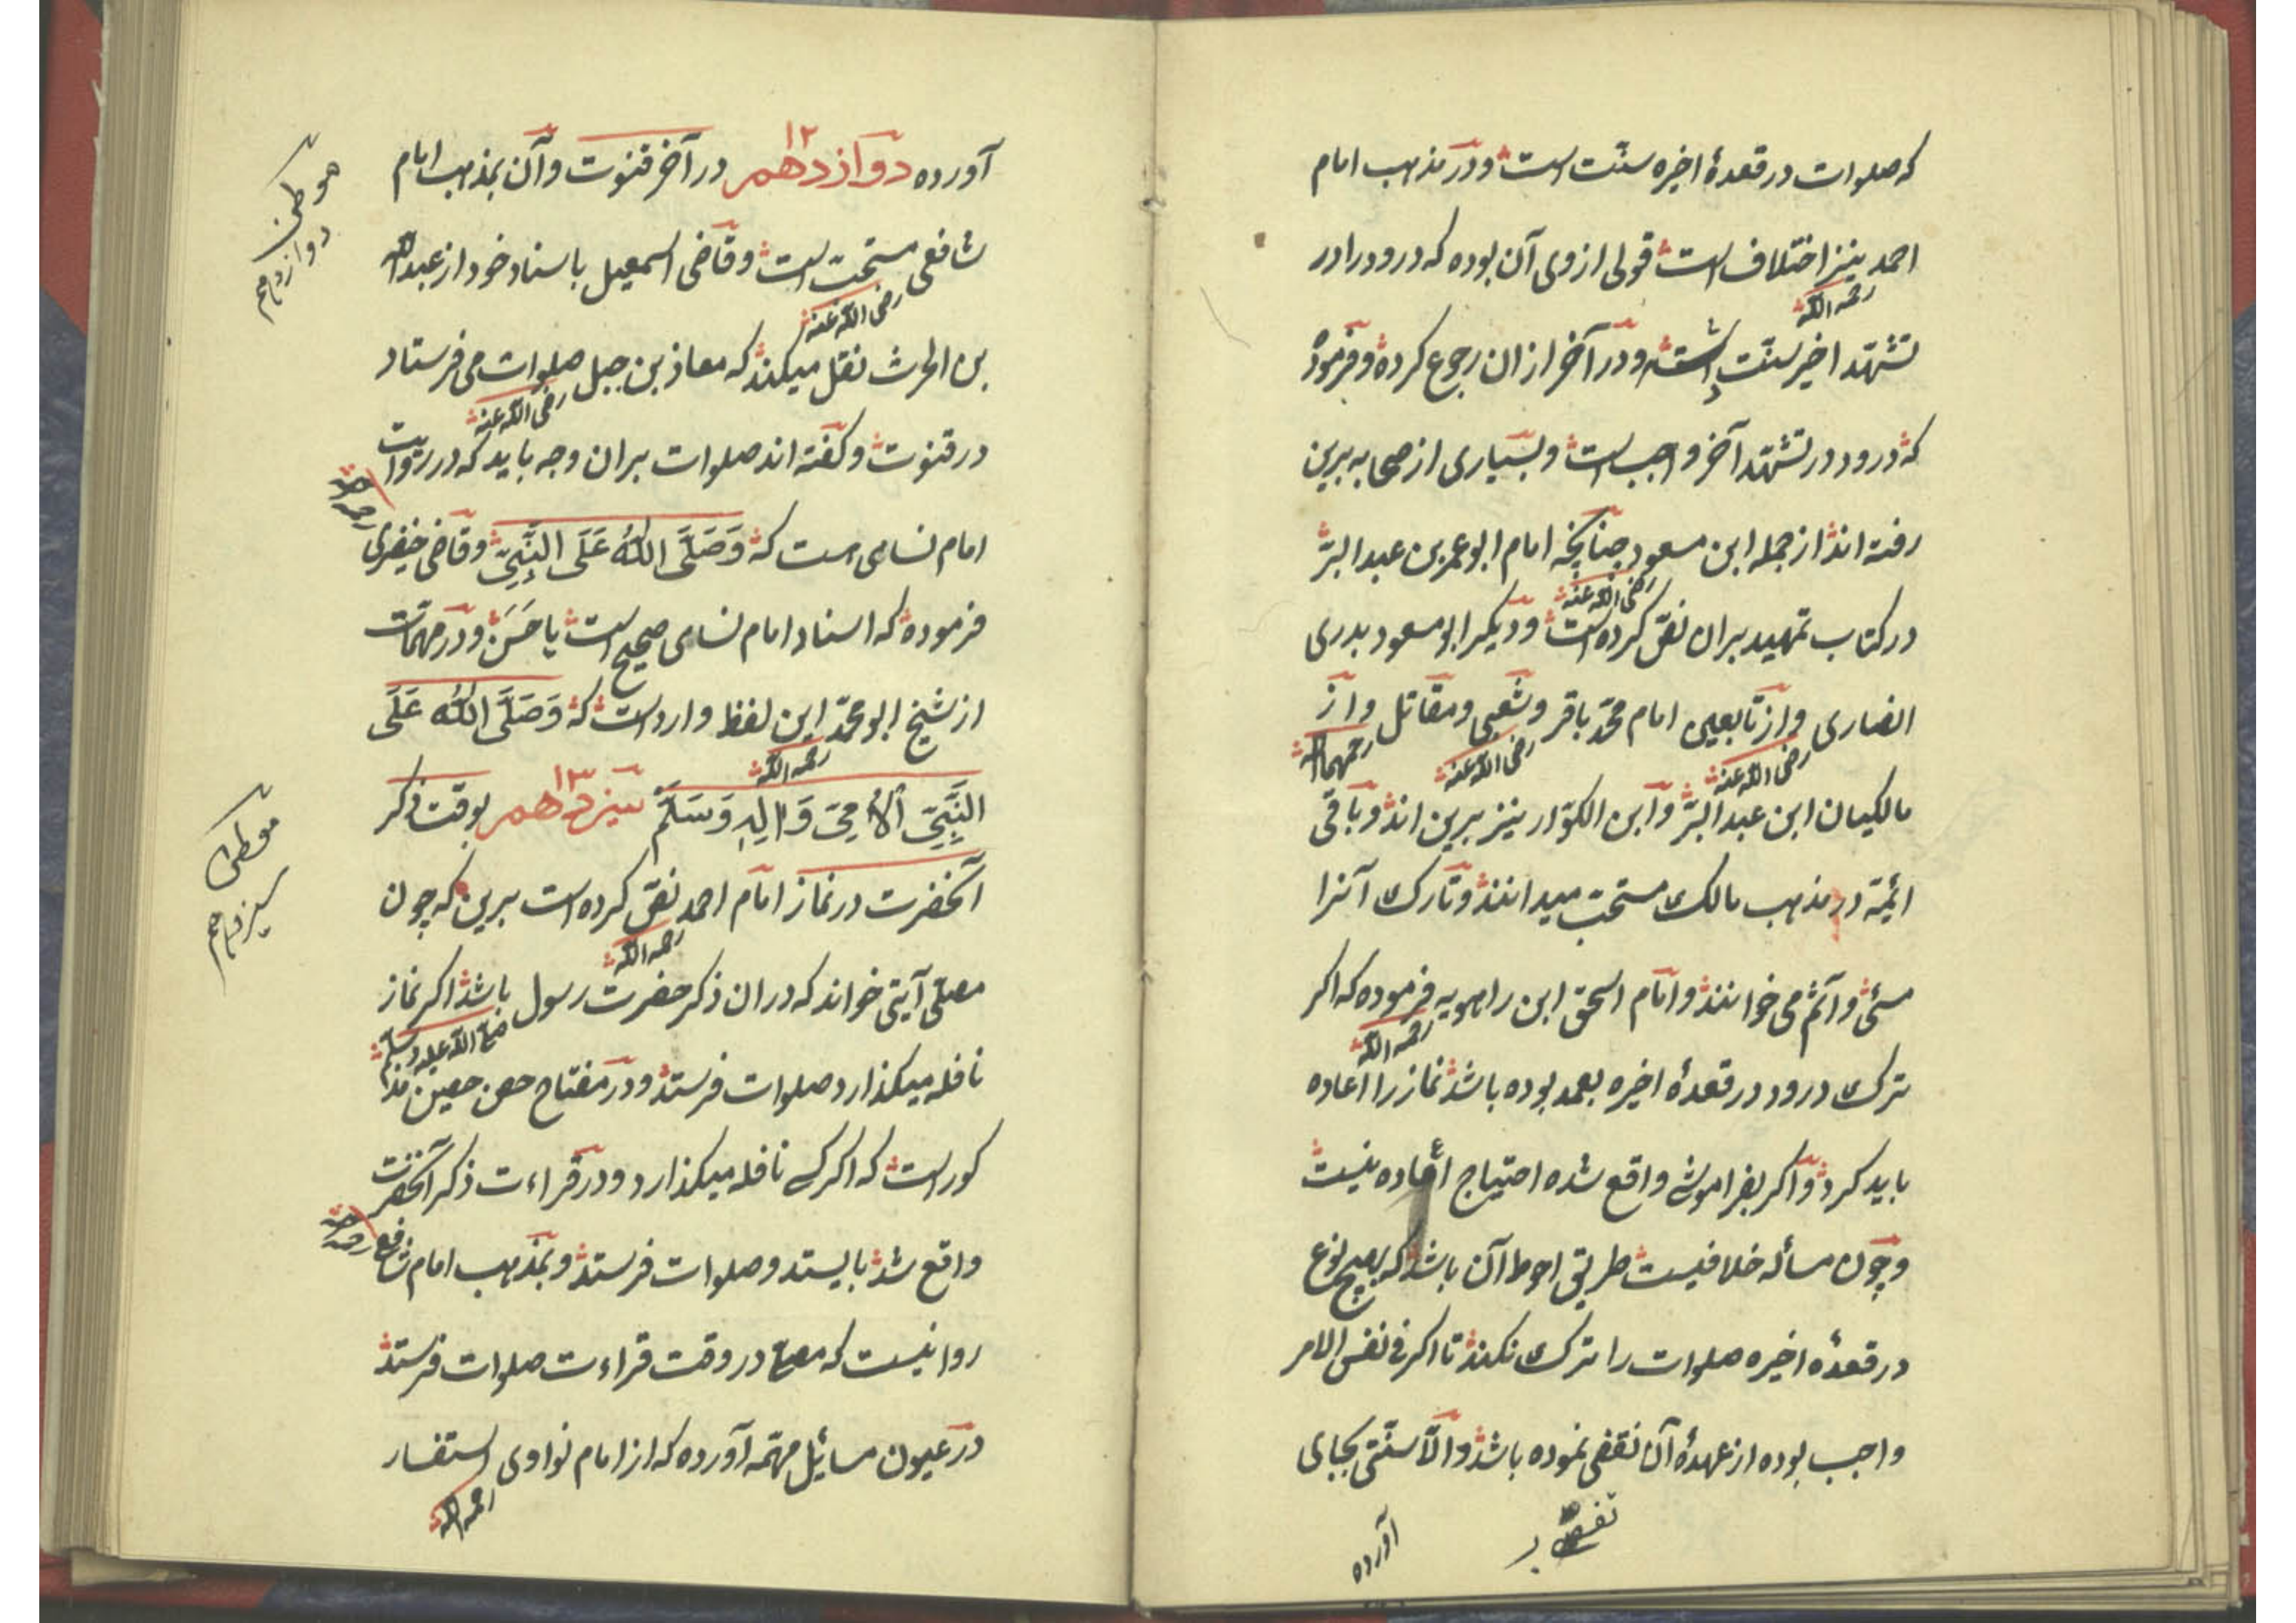 که صلوات در قعدهٔ اخیره سنّت است و در مذهب امام
احمد نیز اختلاف است قولی از وی آن بوده که درود را در
رحمه الله
تشهّد اخیر سنّت داشته و در آخر از ان رجوع کرده و فرموده
که درود در تشهّد آخر واجب است و بسیاری از صحابه برین
رفته اند از جمله ابن مسعود چنانچه امام ابو عمر بن عبد البرّ
رضی الله عنه
در کتاب تمهید بران نصّ کرده است و دیکر ابو مسعود بدری
انصاری و از تابعین امام محمّد باقر و شعبی و مقاتل و از
رضی الله عنه رضی الله عنه رحمهما الله
مالکیان ابن عبد البرّ و ابن الکوّار نیز برین اند و باقی
ائمّة در مذهب مالک مستحبّ میدانند و تارک آنرا
مسئ و آثم می خوانند و امام اسحق ابن راهویه فرموده که اکر
رحمه الله
ترک درود در قعدهٔ اخیره بعمد بوده باشد نماز را اعاده
باید کرد و اکر بفراموشی واقع شده احتیاج اعاده نیست
و چون مسأله خلافیست طریق احوط آن باشد که بهیچ نوع
در قعدهٔ اخیره صلوات را ترک نکند تا اکر فی نفس الامر
واجب بوده از عهدهٔ آن نقضی نموده باشد و الّا سنّتی بجای
آورده
آورده دوازدهم ۱۲ در آخر قنوت و آن بمذهب امام
شافعی مستحبّ است و قاضی اسمعیل باسناد خود از عبد الله
رضی الله عنه
بن الحرث نقل میکند که معاذ بن جبل صلوات می فرستاد
رضی الله عنه
در قنوت و کفته اند صلوات بران وجه باید که در روایت
امام نسای است که وَصَلَّی اللهُ عَلَی النَّبِیِّ و قاضی خیضری
رحمه الله
فرموده که اسناد امام نسای صحیح است یا حَسَن و در مهمّات
از شیخ ابو محمّد این لفظ وارد است که وَصَلَّی اللهُ عَلَی
رحمه الله
النَّبِیِّ الْاُمِّیِّ وَاٰلِهِ وَسَلَّمَ سیزدهم ۱۳ بوقت ذکر
آنحضرت در نماز امام احمد نصّ کرده است برین که چون
رحمه الله
مصلّی آیتی خواند که دران ذکر حضرت رسول باشد اکر نماز
صلی الله علیه وسلّم
نافله میکذارد صلوات فرستد و در مفتاح حصن حصین مذ
کور است که اکر کسی نافله میکذارد و در قراءت ذکر آنحضرت
واقع شد بایستد و صلوات فرستد و بمذهب امام شافعی
رحمه الله
روا نیست که مصلی در وقت قراءت صلوات فرستد
در عیون مسائل مهمّه آورده که از امام نواوی استفسار
رحمه الله
موطن
دوازدهم
موطن
سیزدهم